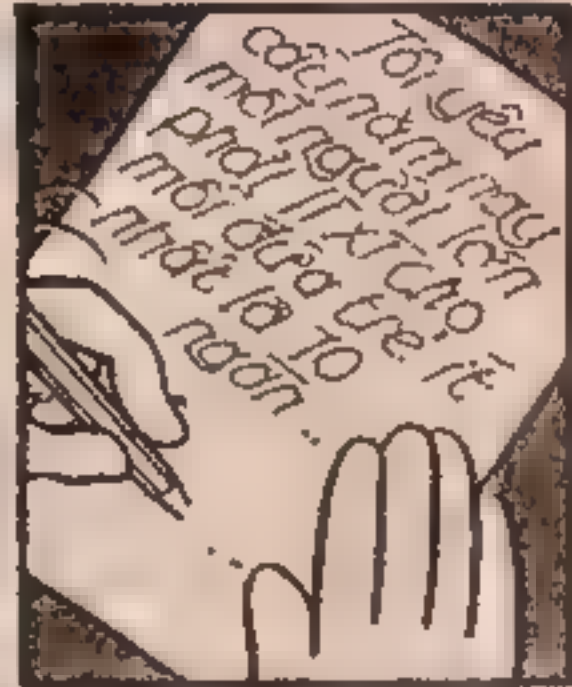 Tôi yêu
cầu năm nay
mọi người lớn
phải lì xì cho
mỗi đứa trẻ ít
nhất là 10
ngàn...